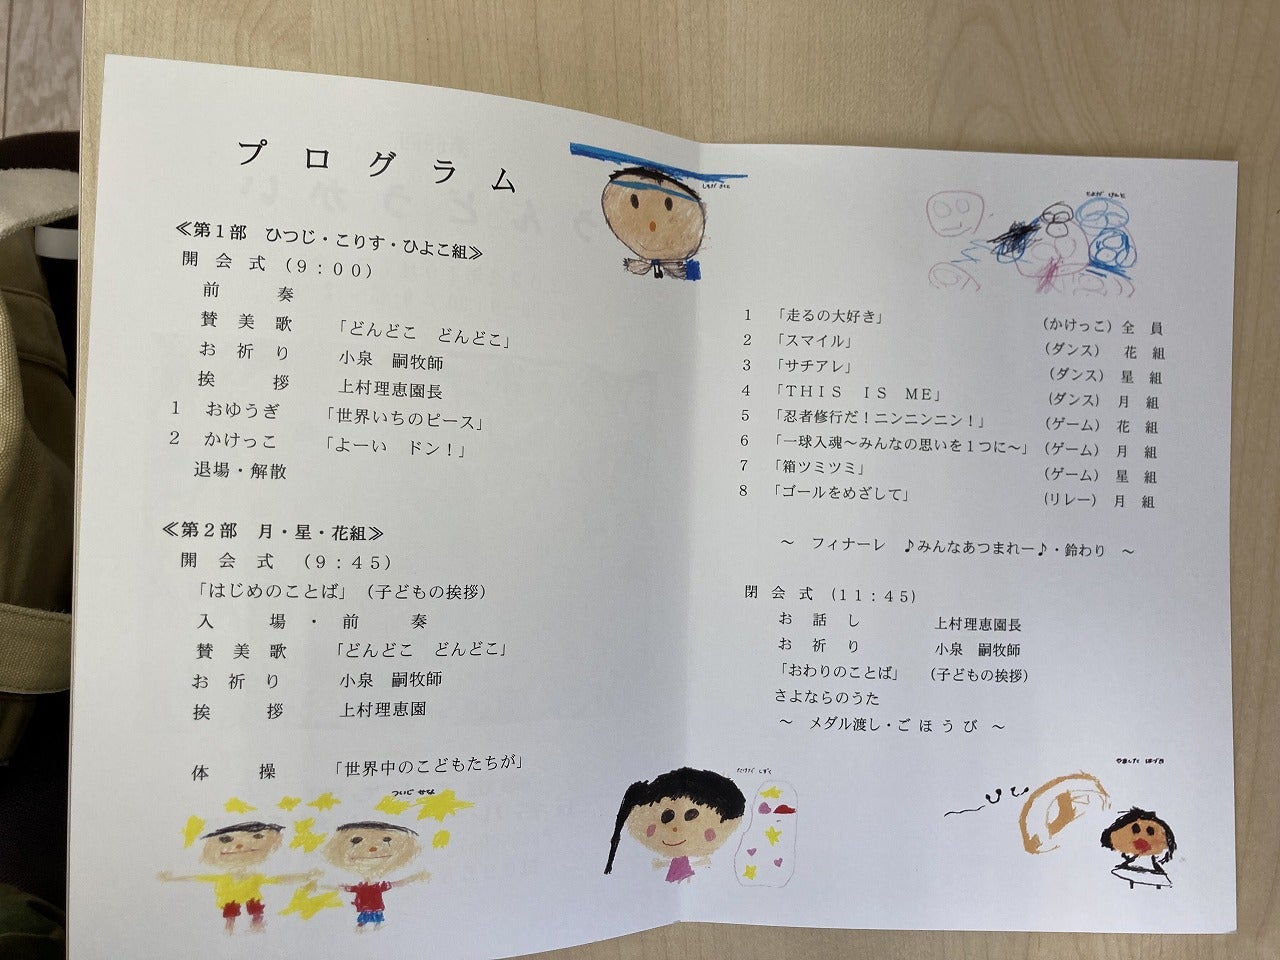 プログラム
≪第１部　ひつじ・こりす・ひよこ組≫
開　会　式　（９：００）
前　　　奏
賛　美　歌　　「どんどこ　どんどこ」
お　祈　り　　小泉　嗣牧師
挨　　　拶　　上村理恵園長
１　おゆうぎ　　「世界いちのピース」
２　かけっこ　　「よーい　ドン！」
退場・解散
≪第２部　月・星・花組≫
開　会　式　（９：４５）
「はじめのことば」（子どもの挨拶）
入　　場　・　前　　奏
賛　美　歌　　「どんどこ　どんどこ」
お　祈　り　　小泉　嗣牧師
挨　　　拶　　上村理恵園
体　　　操　　「世界中のこどもたちが」
ついじ せな
１　「走るの大好き」　（かけっこ）全　員
２　「スマイル」　（ダンス）　花　組
３　「サチアレ」　（ダンス）　星　組
４　「ＴＨＩＳ　ＩＳ　ＭＥ」　（ダンス）　月　組
５　「忍者修行だ！ニンニンニン！」　（ゲーム）　花　組
６　「一球入魂～みんなの思いを１つに～」　（ゲーム）　月　組
７　「箱ツミツミ」　（ゲーム）　星　組
８　「ゴールをめざして」　（リレー）　月　組
～　フィナーレ　♪みんなあつまれー♪・鈴わり　～
閉　会　式　（１１：４５）
お　話　し　　上村理恵園長
お　祈　り　　小泉　嗣牧師
「おわりのことば」　（子どもの挨拶）
さよならのうた
～　メダル渡し・ご ほ う び　～
たけだ しずく
やました はづき